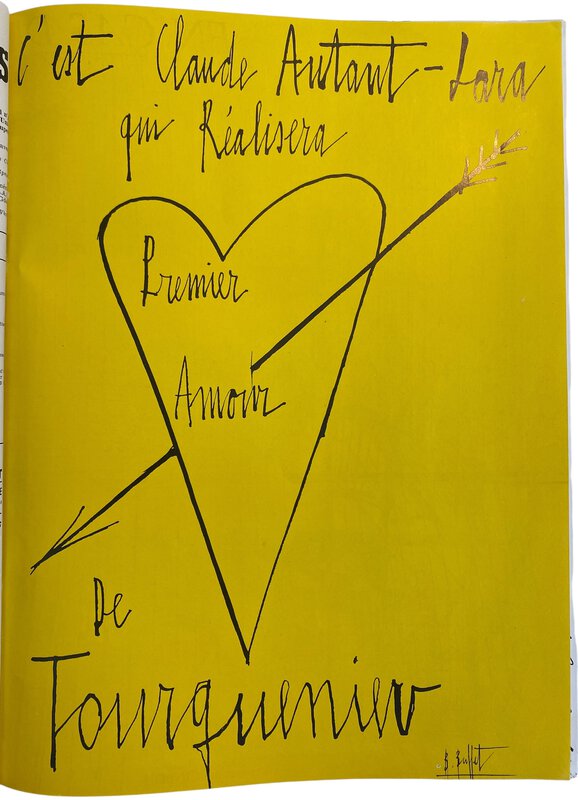 C'est Claude Autant-Lara
qui Réalisera
Premier
Amour
De
Tourgueniev
B. Buffet